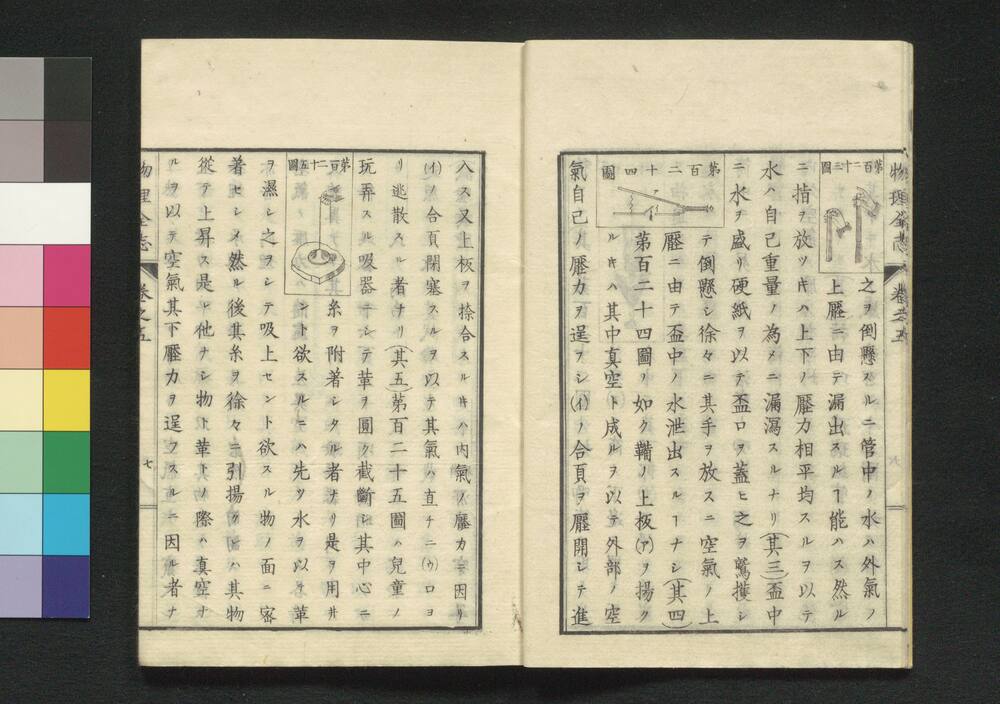 物理全志 卷之五
第百二十三圖
之ヲ倒懸スルニ管中ノ水ハ外氣ノ
上壓ニ由テ漏出スルヿ能ハス然ル
ニ指ヲ放ツキハ上下ノ壓力相平均スルヲ以テ
水ハ自己重量ノ為メニ漏瀉スルナリ(其三)盃中
ニ水ヲ盛リ硬紙ヲ以テ盃口ヲ蓋ヒ之ヲ鷲攫シ
第百二十四圖
テ倒懸シ徐々ニ其手ヲ放スニ空氣ノ上
壓ニ由テ盃中ノ水泄出スルヿナシ(其四)
第百二十四圖ノ如ク鞴ノ上板(ア)ヲ揚ク
ルキハ其中真空ト成ルヲ以テ外部ノ空
氣自己ノ壓力ヲ逞ヲシ(イ)ノ合頁ヲ壓開シテ進
入ス又上板ヲ捺合スルキハ內氣ノ壓力ニ因リ
(イ)ノ合頁閉塞スルヲ以テ其氣ハ直チニ(ウ)ロヨ
リ逃散スル者ナリ(其五)第百二十五圖ハ兒童ノ
玩弄スル吸器ニシテ革ヲ圓ク截斷シ其中心ニ
第百二十五圖
糸ヲ附着シタル者ナリ是ヲ用井
ント欲スルニハ先ツ水ヲ以テ革
ヲ濕シ之ヲシテ吸上セント欲スル物ノ面ニ密
着セシメ然ル後其糸ヲ徐々ニ引揚クレハ其物
從テ上昇ス是レ他ナシ物ト革トノ際ハ真空ナ
ルヲ以テ空氣其下壓力ヲ逞フスルニ因ル者ナ
物理全志 卷之五 七